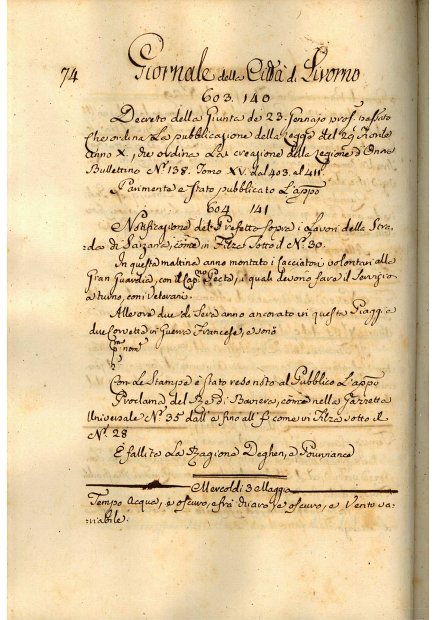 74 Giornale della Città di Livorno
603. 140
Decreto della Giunta de 23. Gennajo pross. passato
che ordina La pubblicazione della Legge del 29 Fiorile
Anno X., che ordina La creazione della Legione d'Onore
Bullettino N.º 138. Tomo XV. dal 403. al 411.
Parimente è stato pubblicato L'appo
604 141
Notificazione del Prefetto sopra i Lavori della Stra-
da di Sarzana, come in Filza sotto il N.º 30.
In questa mattina anno montato i Cacciatori volontari alla
Gran Guardia, con il Cap.no Pecta, i quali devono fare il Servizio
a turno, con i Veterani.
Alle ore due di Sera anno ancorato in questa Piaggia
due Corvette in Guerra Francese, e sono
Con Le Stampe è stato reso noto al Pubblico L'appo
Proclama del Re di Baviera, come nella Gazzetta
Universale N.º 35 dall' a fino all' f come in Filza sotto il
N.º 28
È fallita La Ragione Deghen, e
Mercoldì 3 Maggio
Tempo Acqua, e oscuro, e frà chiaro e oscuro, e Vento va-
riabile.